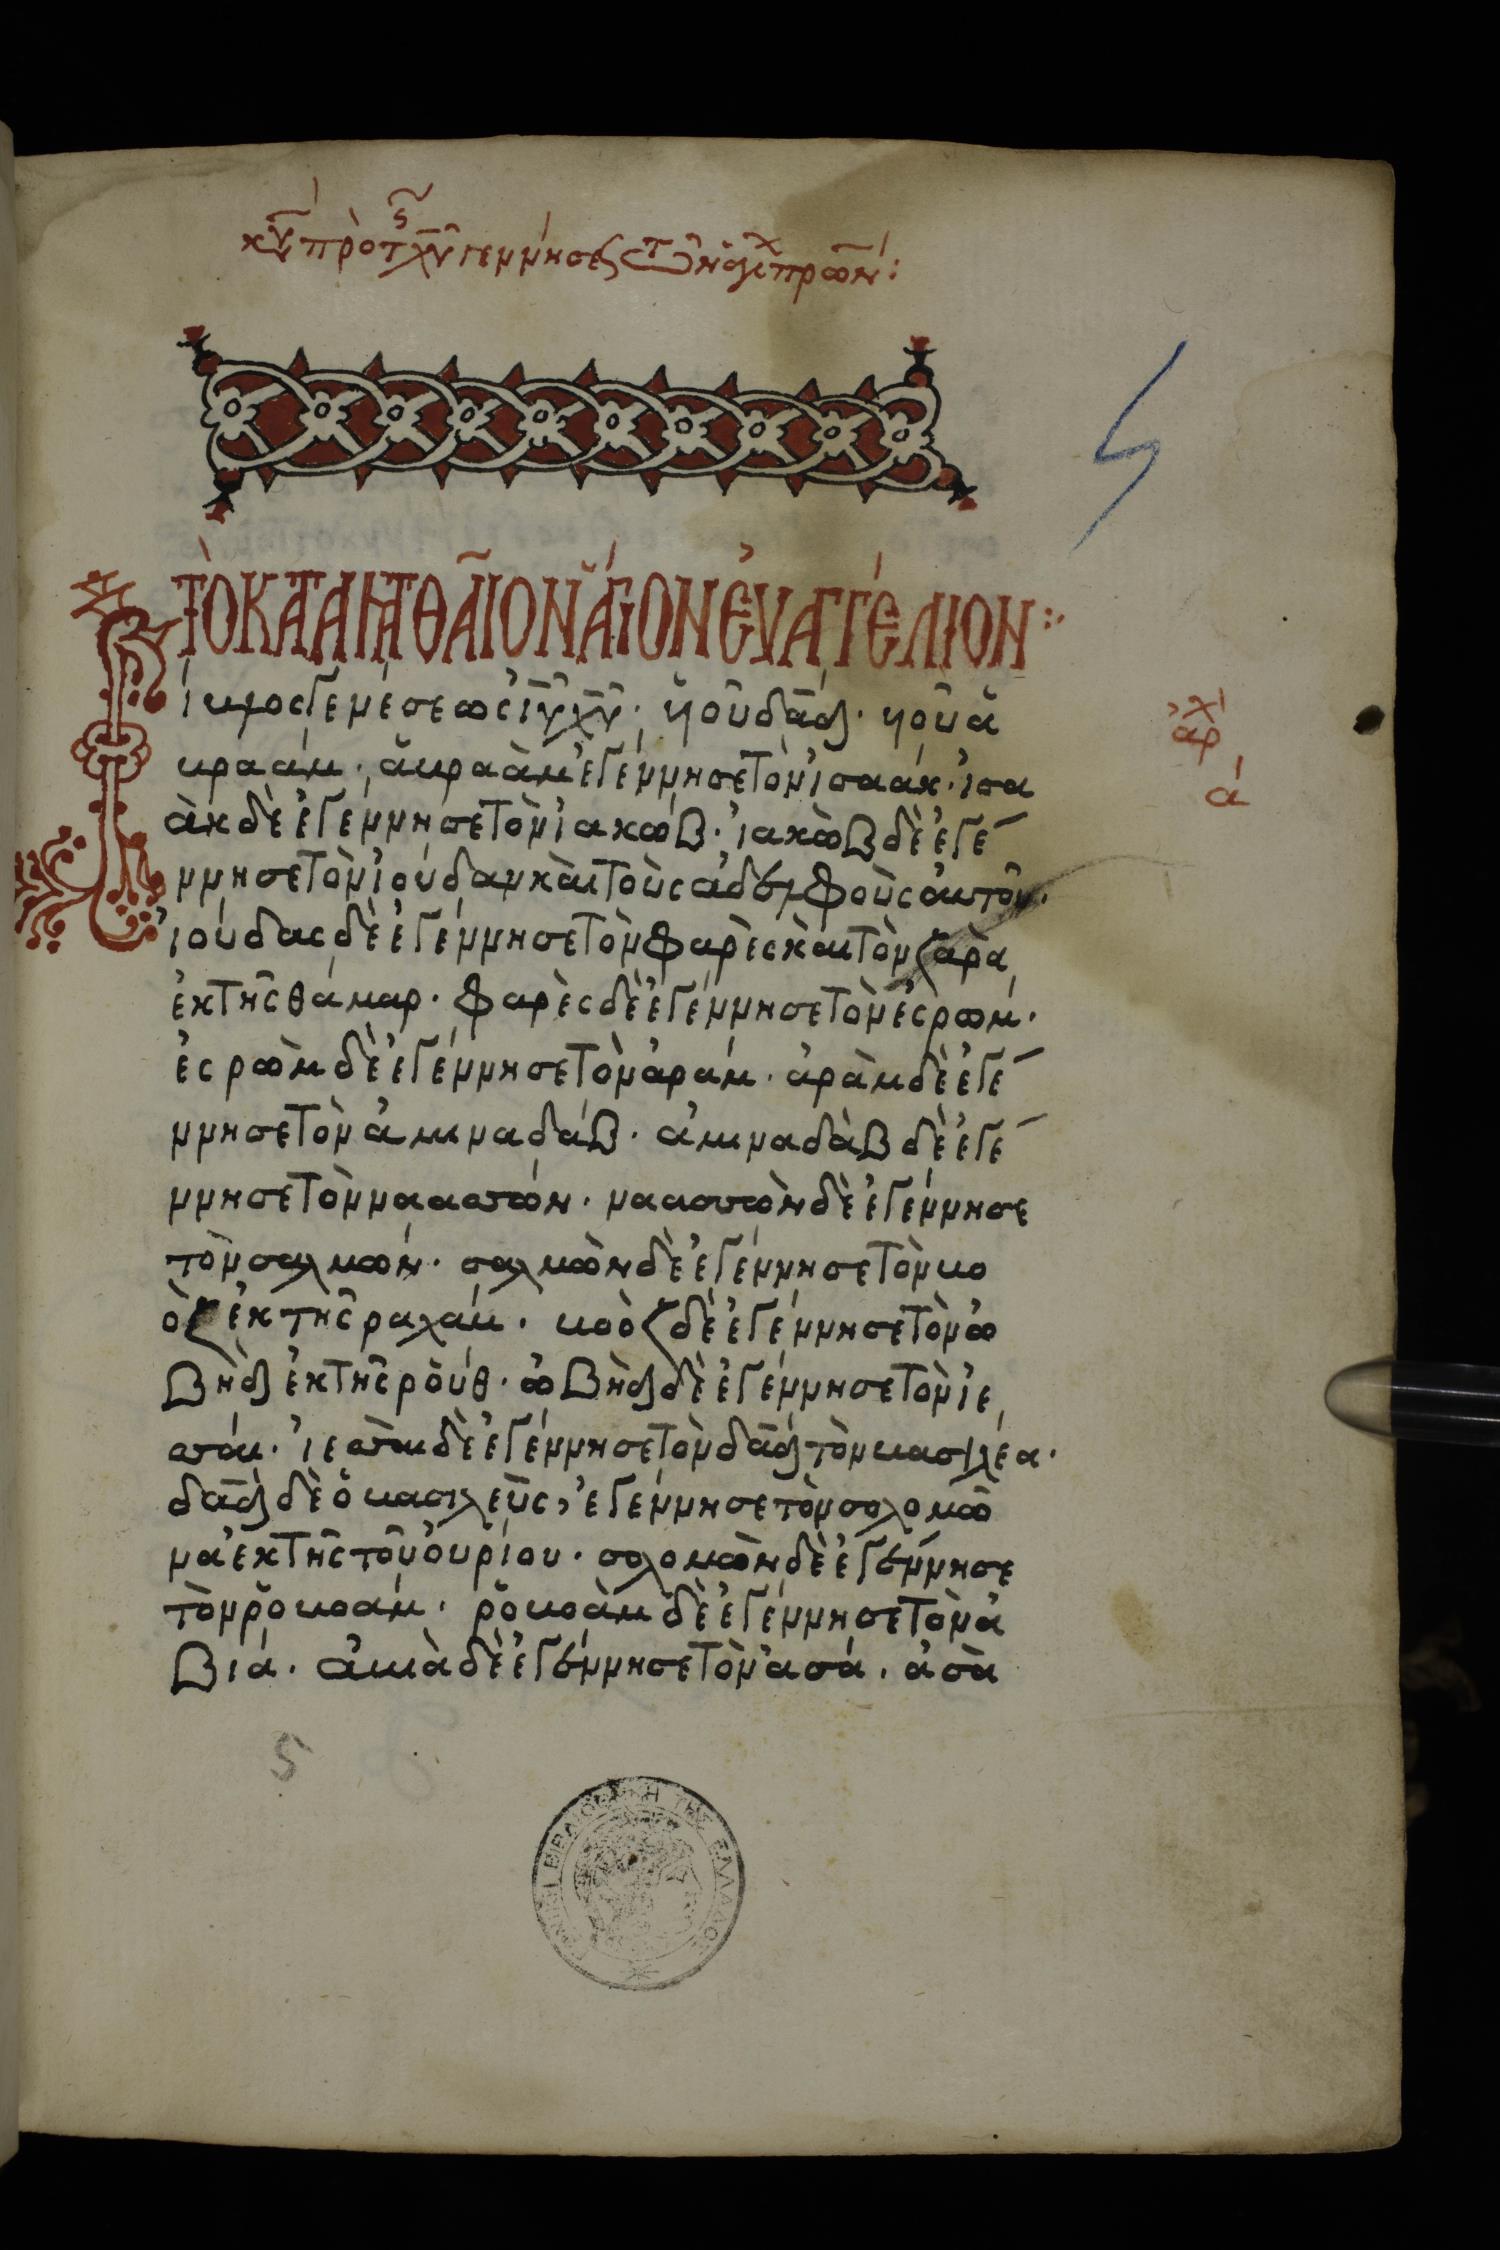 κυ πρὸ τ χυ γεννήσε
ΤὸΚΑΤΑΜΑΤΘΑῖΟΝἍΓΙΟΝἘΥΑΓΓΈΛΙΟΝ
ίβλος γενέσεως ἰυ χυ· ὑοῦ δαδ· ὑοῦ ἀ
βραάμ· ἀβραὰμ ἐγέννησε τὸν ἰσαάκ· ἰσα
ὰκ δὲ ἐγέννησε τὸν ἰακώβ· ἰακὼβ δὲ ἐγέ
ννησε τὸν ἰούδαν καὶ τοὺς ἀδελφοὺς ἀυτοῦ·
ἰούδας δὲ ἐγέννησε τὸν φαρὲς καὶ τὸν ζαρὰ
ἐκ τῆς θάμαρ· φαρὲς δὲ ἐγέννησε τὸν ἐςρώμ·
ἐςρὼμ δὲ ἐγέννησε τὸν ἀράμ· ἀρὰμ δὲ ἐγέ
ννησε τὸν ἀμιναδάβ· ἀμιναδὰβ δὲ ἐγέ
ννησε τὸν ναασσών· ναασσὼν δὲ ἐγέννησε
τὸν σαλμών· σαλμὼν δὲ ἐγέννησε τὸν βο
ὸζ ἐκ τῆς ραχάβ· βοὸζ δὲ ἐγέννησε τὸν ὠ
βὴδ ἐκ τῆς ροὺθ· ὠβὴδ δὲ ἐγέννησε τὸν ἰε
σσαί· ἰεσσαὶ δὲ ἐγέννησε τὸν δαδ τὸν βασιλέα·
δαδ δὲ ὁ βασιλεῦς, ἐγέννησε τὸν σολομῶ
να ἐκ τῆς τοῦ ὀυρίου· σολομὼν δὲ ἐγέννησε
τὸν ῥοβοάμ· ῥοβοὰμ δὲ ἐγέννησε τὸν ἀ
βιά· ἀβιὰ δὲ ἐγέννησε τὸν ἀσά· ἀσὰ
ἀρχ
ά
5
ΕΘΝΙΚΗ ΒΙΒΛΙΟΘΗΚΗ ΤΗΣ ΕΛΛΑΔΟΣ